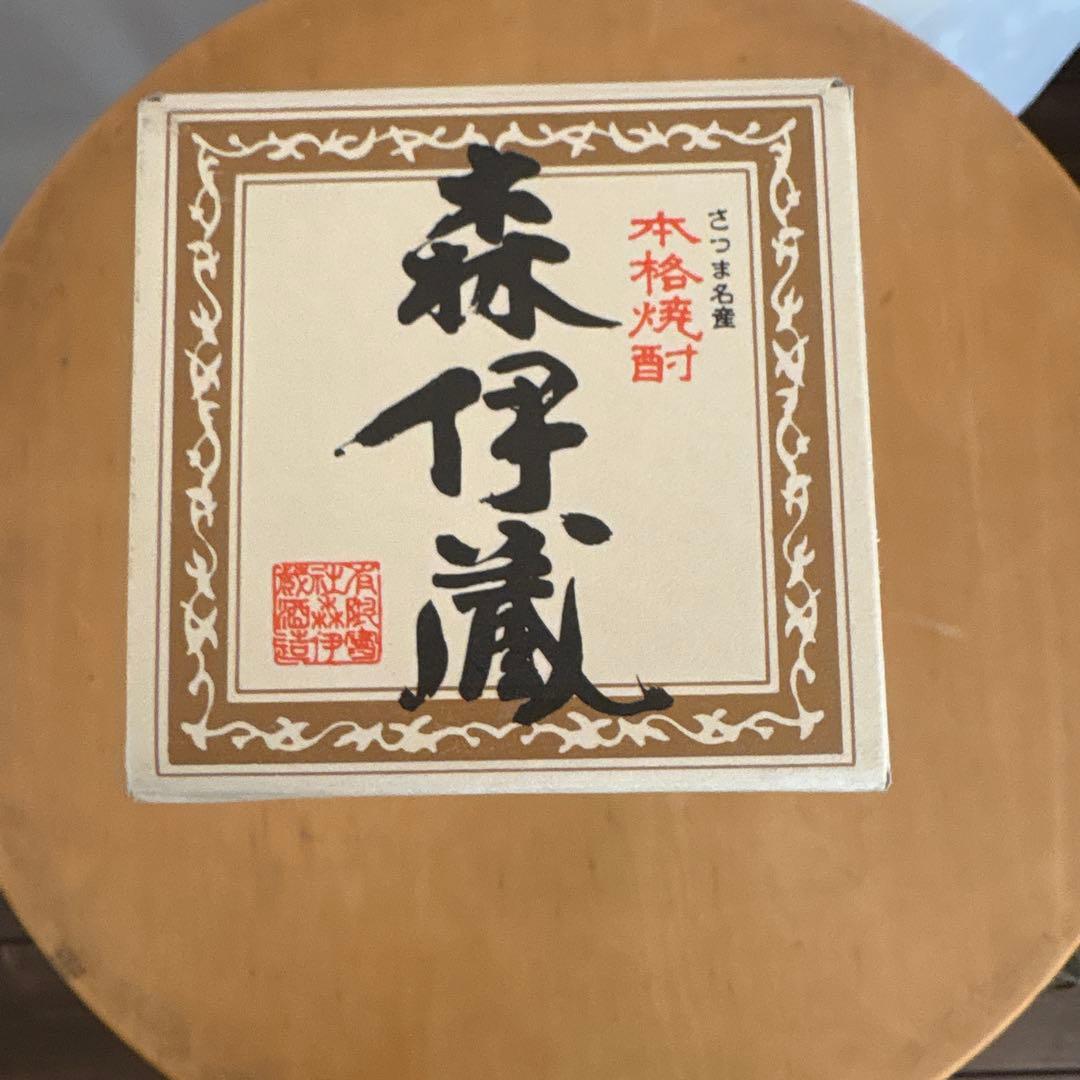 さつま名産
本格焼酎
森伊蔵
有限會
社森伊
蔵酒造